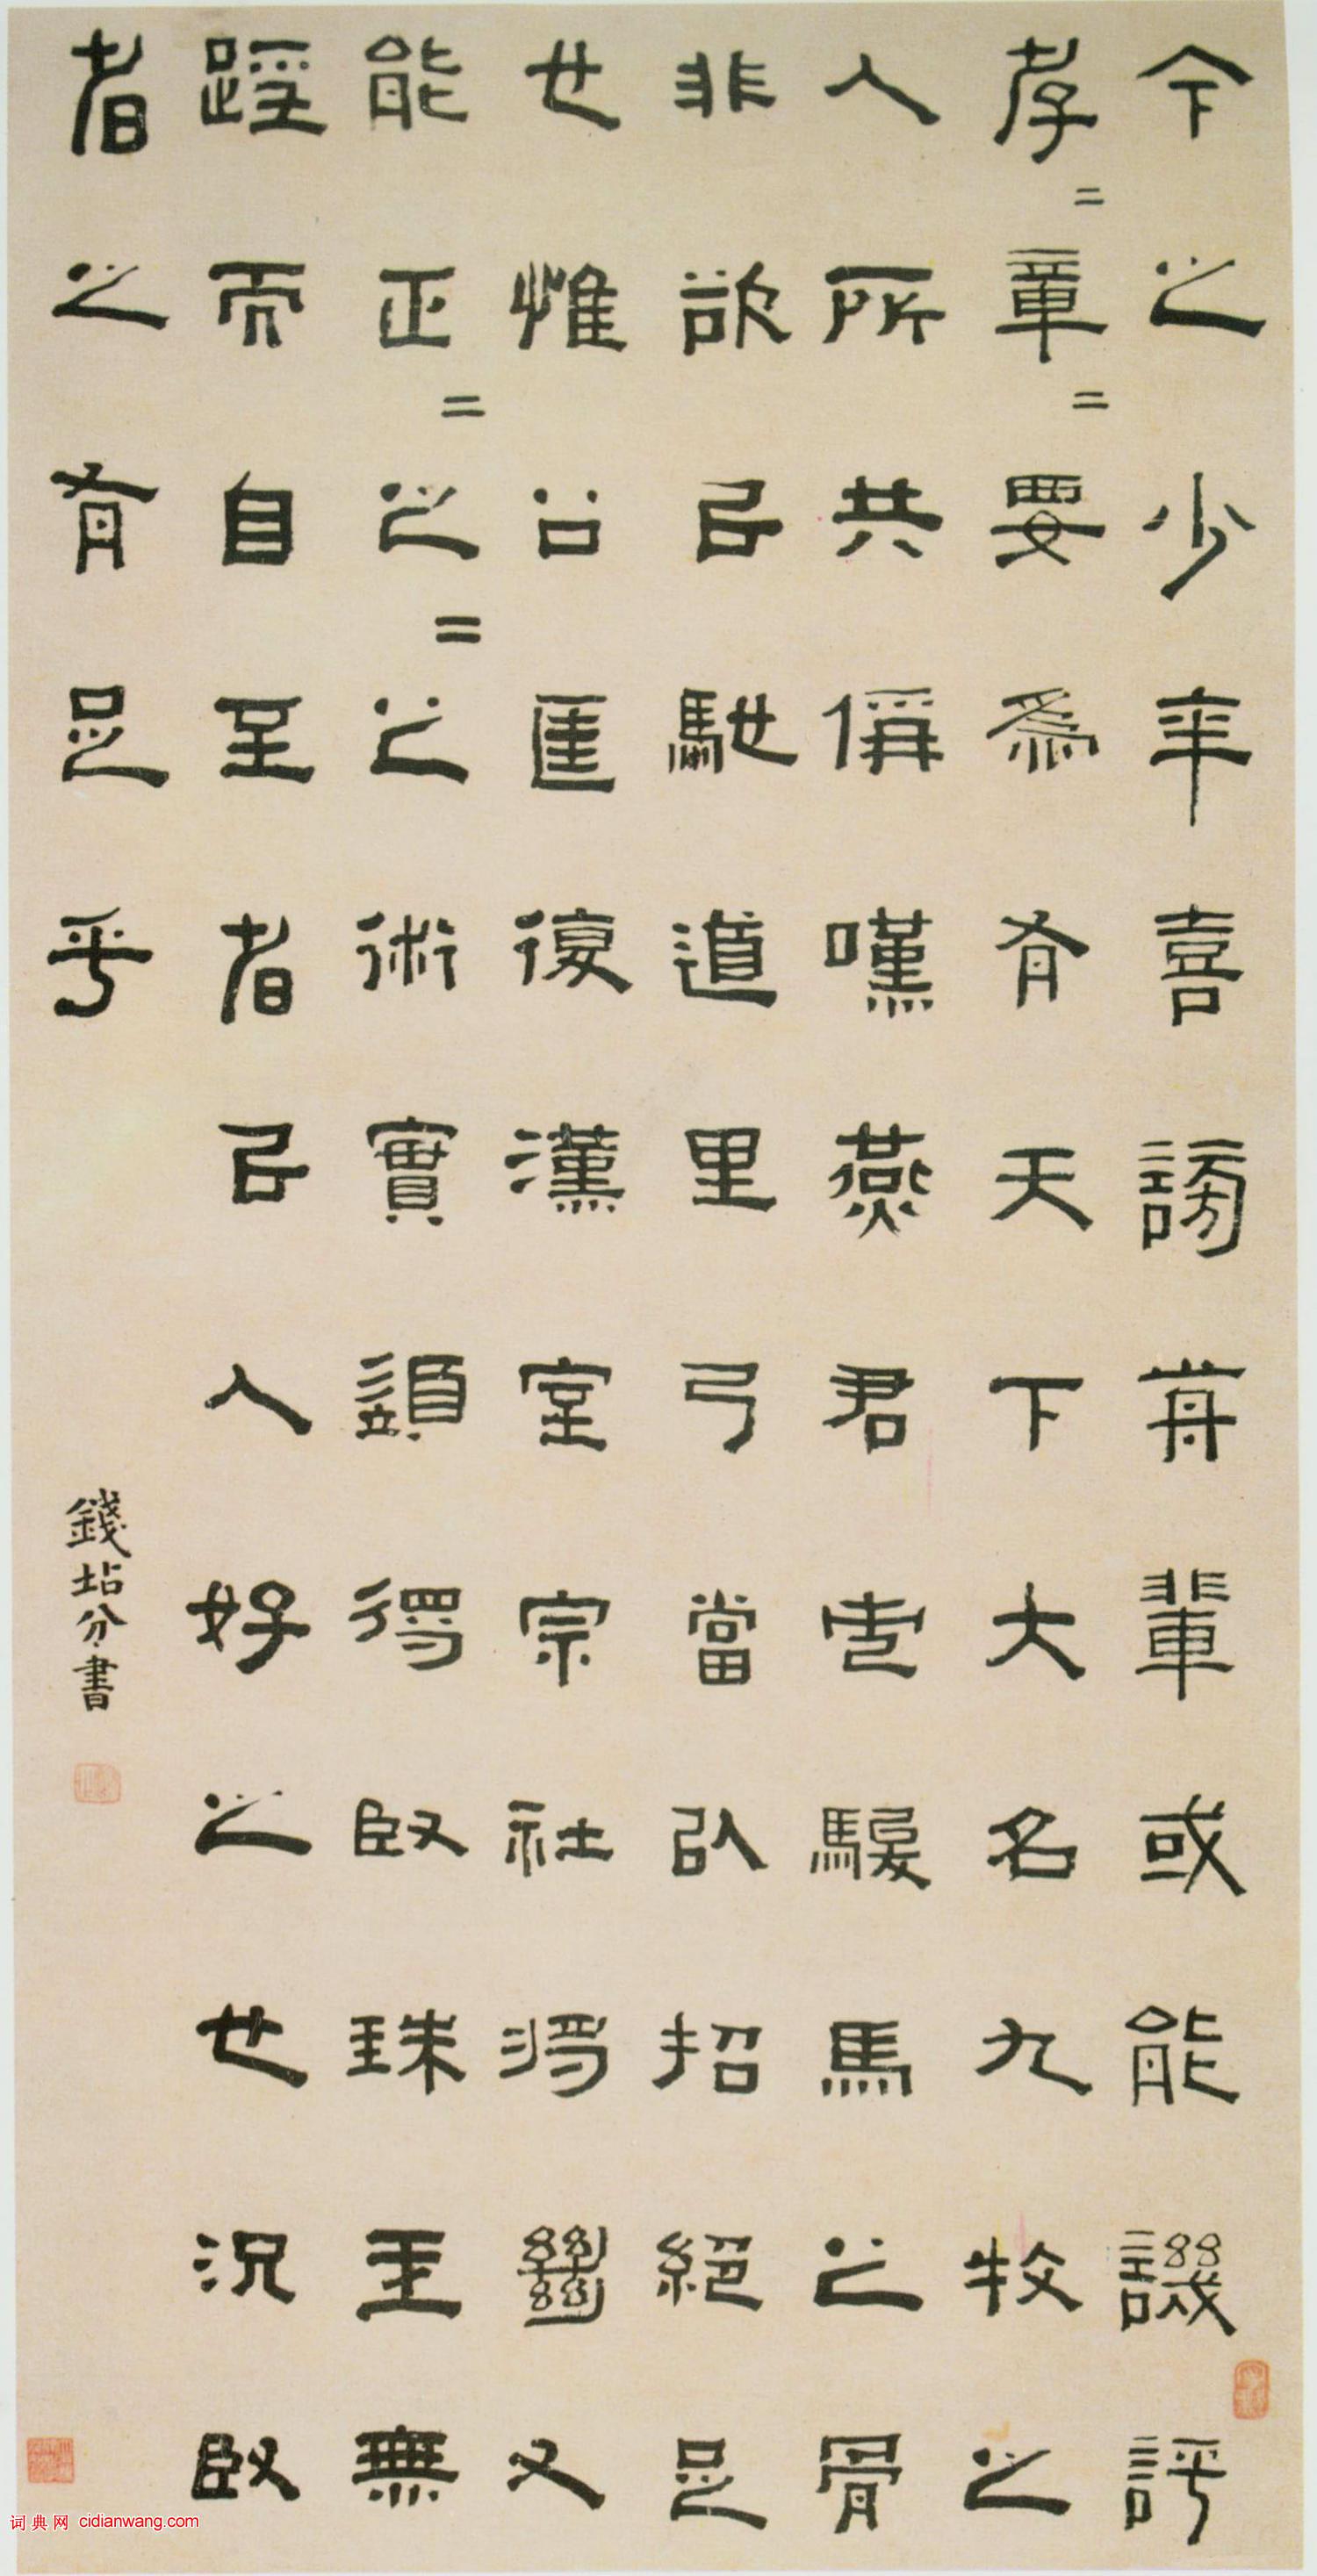 今之少年喜謗前輩或能譏評
孝=章=要為有天下大名九牧之
人所共稱嘆燕君市駿馬之骨
非欲㠯馳道里乃當以招絕足
也惟公匡復漢室宗社將絕又
能正=之=之術實須得臤珠玉無
踁而自至者㠯人好之也況臤
者之有足乎
錢坫分書
词典网 cidianwang.com